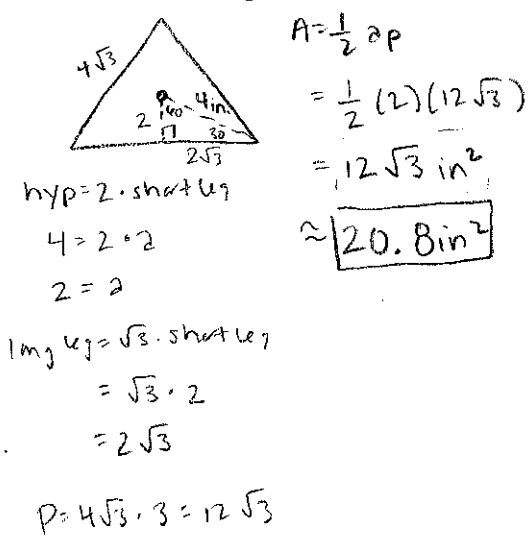 4√3
2
60
4 in.
30
2√3
hyp = 2 · short leg
4 = 2 · a
2 = a
long leg = √3 · short leg
= √3 · 2
= 2√3
P = 4√3 · 3 = 12√3
A = 1/2 ap
= 1/2 (2)(12√3)
= 12√3 in²
≈ 20.8 in²